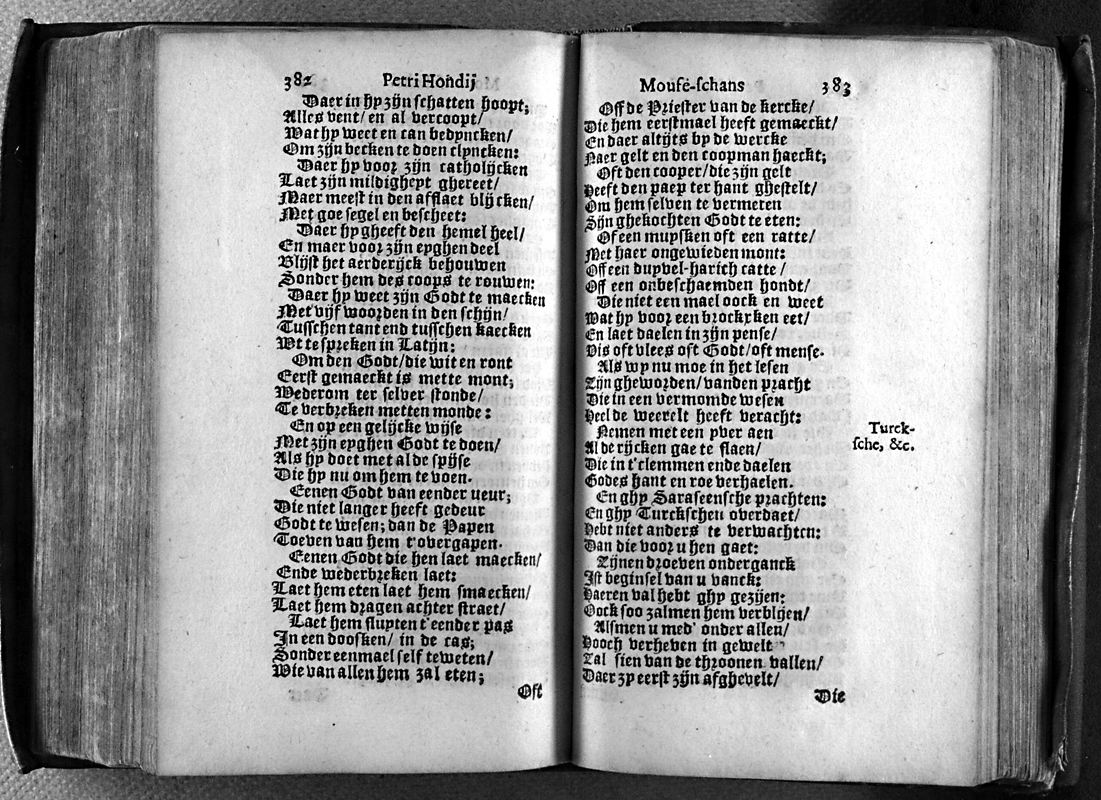 382 Petri Hondij
Daer in hy zijn schatten hoopt;
Alles vent/ en al vercoopt/
Wat hy weet en can bedyncken/
Om zijn becken te doen clyncken:
Daer hy voor zijn catholijcken
Laet zijn mildigheyt ghereet/
Maer meest in den afflaet blijcken/
Met goe segel en bescheet:
Daer hy gheeft den hemel heel/
En maer voor zijn eyghen deel
Blijft het aerderijck behouwen
Sonder hem des coops te rouwen:
Daer hy weet zijn Godt te maecken
Met vijf woorden in den schijn/
Tusschen tant end tusschen kaecken
Wt te spreken in Latijn:
Om den Godt/ die wit en ront
Eerst gemaeckt is mette mont;
Wederom ter selver stonde/
Te verbreken metten monde:
En op een gelijcke wijse
Met zijn eyghen Godt te doen/
Als hy doet met al de spijse
Die hy nu om hem te voen.
Eenen Godt van eender ueur;
Die niet langer heeft gedeur
Godt te wesen; dan de Papen
Toeven van hem t'overgapen.
Eenen Godt die hen laet maecken/
Ende wederbreken laet:
Laet hem eten laet hem smaecken/
Laet hem dragen achter straet/
Laet hem sluyten t'eender pas
In een doosken/ in de cas;
Sonder eenmael self te weten/
Wie van allen hem zal eten;
Oft
Mouse-schans 383
Off de Priester van de kercke/
Die hem eerstmael heeft gemaeckt/
En daer altijts by de wercke
Naer gelt en den coopman haeckt;
Oft den cooper/ die zijn gelt
Heeft den paep ter hant ghestelt/
Om hem selven te vermeten
Sijn ghekochten Godt te eten:
Of een muysken oft een ratte/
Met haer ongewieden mont:
Off een duyvel-harich catte/
Off een onbeschaemden hondt/
Die niet een mael oock en weet
Wat hy voor een brocken eet/
En laet daelen in zijn pense/
Vis oft vlees oft Godt/ oft mense.
Als wy nu moe in het lesen
Zijn gheworden/ vanden pracht
Die in een vermomde wesen
Heel de weerelt heeft veracht:
Nemen met een yver aen
Al de rijcken gae te slaen/
Die in t'clemmen ende daelen
Godes hant en roe verhaelen.
En ghy Saraseensche prachten:
En ghy Turckschen overdaet/
Hebt niet anders te verwachten:
Dan die voor u hen gaet:
Zijnen droeven onderganck
Ist beginsel van u vanck:
Haeren val hebt ghy gezijen:
Oock soo zalmen hem verblijen/
Alsmen u med' onder allen/
Hooch verheven in gewelt
Zal sien van de throonen vallen/
Daer zy eerst zijn afghevelt/
Die
Turck-
sche, &c.